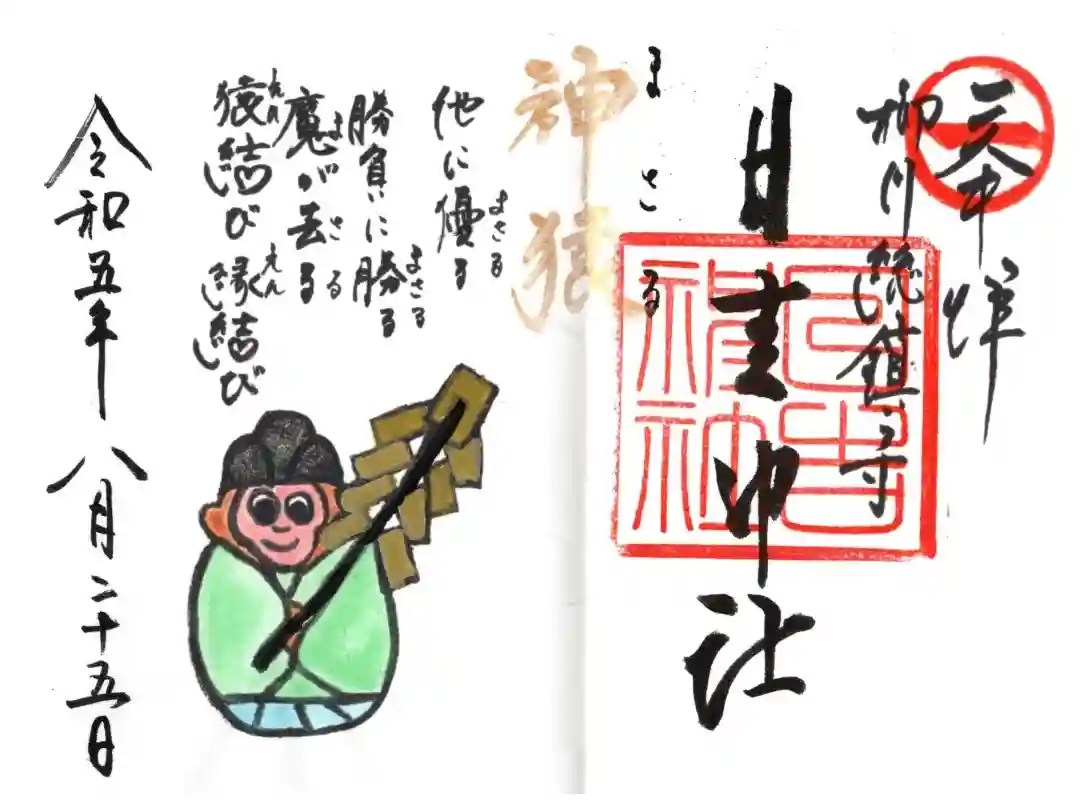 奉拝
柳川総鎮守
日吉神社
日吉神社
まさる
神猿
他に優る
まさる
勝負に勝る
まさる
魔が去る
ま さる
猿結び 縁結び
えん えん
令和五年 八月二十五日